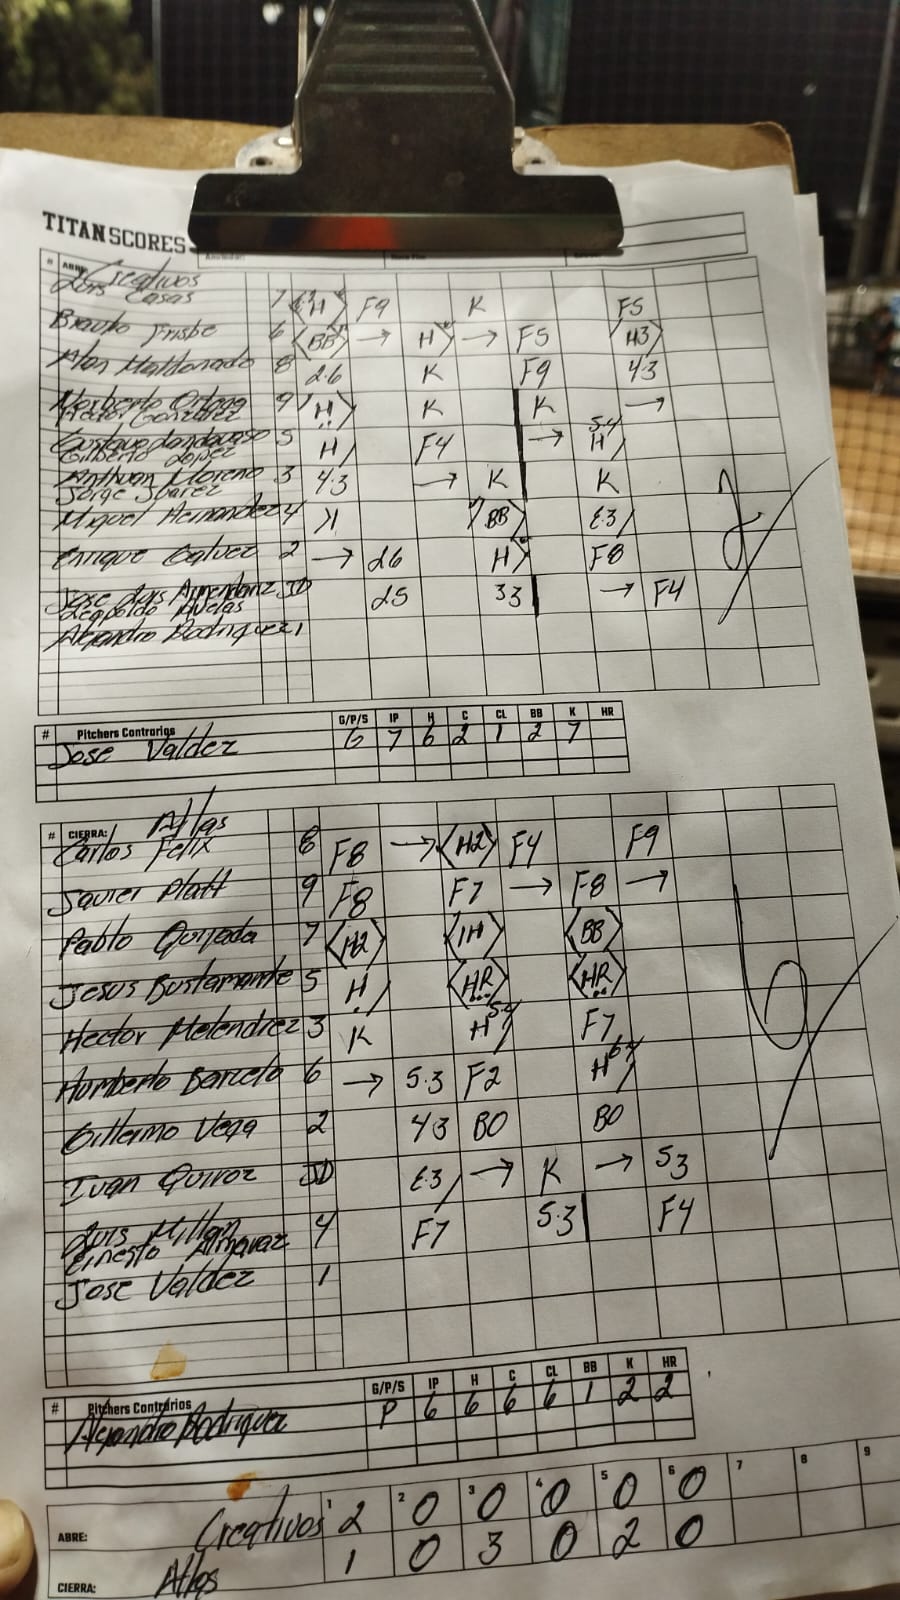 TITANSCORES
# ABRE: Creativos
Luis Casas 7 H F9 K F5
Braulio Frisbe 6 BB → H → F5 H3
Alan Maldonado 8 2.6 K F9 43
Norberto Ortega 9 H K K →
Hector Gonzalez
Gustavo 5 H F4 → H 5.4
Gilberto Lopez
Anthuan Moreno 3 4.3 → K K
Jorge Juarez
Miguel Hernandez 4 K BB E.3
Enrique Galvez 2 → 26 H F8
Jose Luis JD 25 33 → F4
Leopoldo
Alejandro Rodriguez 1
2
# Pitchers Contrarios G/P/S IP H C CL BB K HR
Jose Valdez G 7 6 2 1 2 7
# CIERRA: Atlas
Carlos Felix 8 F8 → H2 F4 F9
Javier Platt 9 F8 F7 → F8 →
Pablo Quijada 7 H2 1H BB
Jesus Bustamante 5 H HR HR
Hector Melendrez 3 K H 5.4 F7
Humberto Barcelo 6 → 5.3 F2 H 6.4
Gillermo Vega 2 43 BO BO
Ivan Quiroz JD E.3 → K → 53
Luis Millan 4 F7 5.3 F4
Ernesto Almaraz
Jose Valdez 1
6
# Pitchers Contrarios G/P/S IP H C CL BB K HR
Alejandro Rodriguez P 6 6 6 6 1 2 2
1 2 3 4 5 6 7 8 9
ABRE: Creativos 2 0 0 0 0 0
CIERRA: Atlas 1 0 3 0 2 0